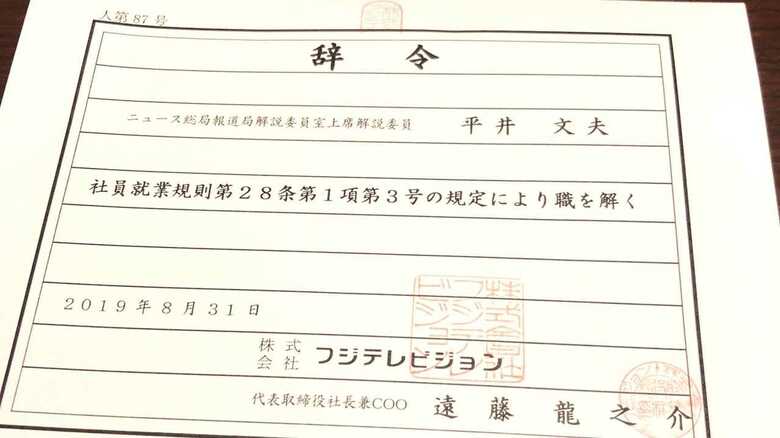 人第87号
辞令
ニュース総局報道局解説委員室上席解説委員 平井 文夫
社員就業規則第28条第1項第3号の規定により職を解く
2019年8月31日
株式会社 フジテレビジョン
株式会社フジテレビジョン
代表取締役社長兼COO 遠藤龍之介